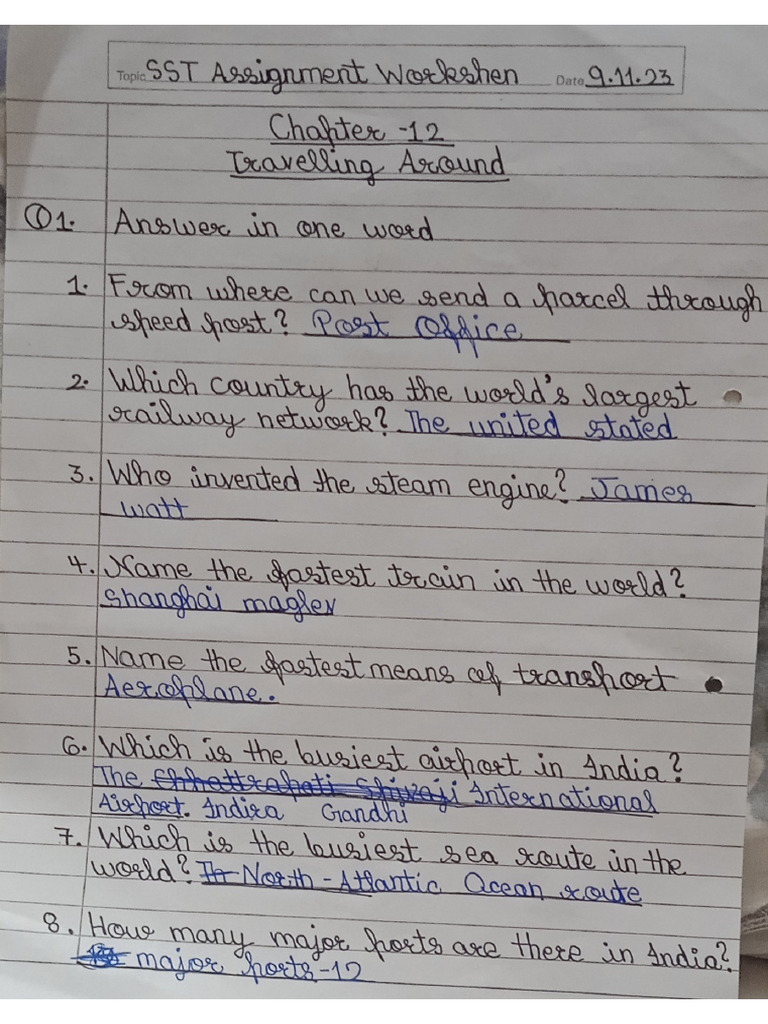 Topic SST Assignment Workshen Date 9.11.23
Chapter -12
Travelling Around
Q1. Answer in one word
1. From where can we send a parcel through
speed post? Post Office
2. Which country has the world's largest
railway network? The united stated
3. Who invented the steam engine? James
watt
4. Name the fastest train in the world?
Shanghai maglev
5. Name the fastest means of transport
Aeroplane.
6. Which is the busiest airport in India?
The Chhattrapati Shivaji International
Airport. Indira Gandhi
7. Which is the busiest sea route in the
world? North-Atlantic Ocean route
8. How many major ports are there in India?
major ports-12